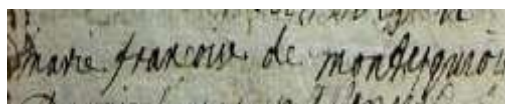 marie francoise de montesquiou